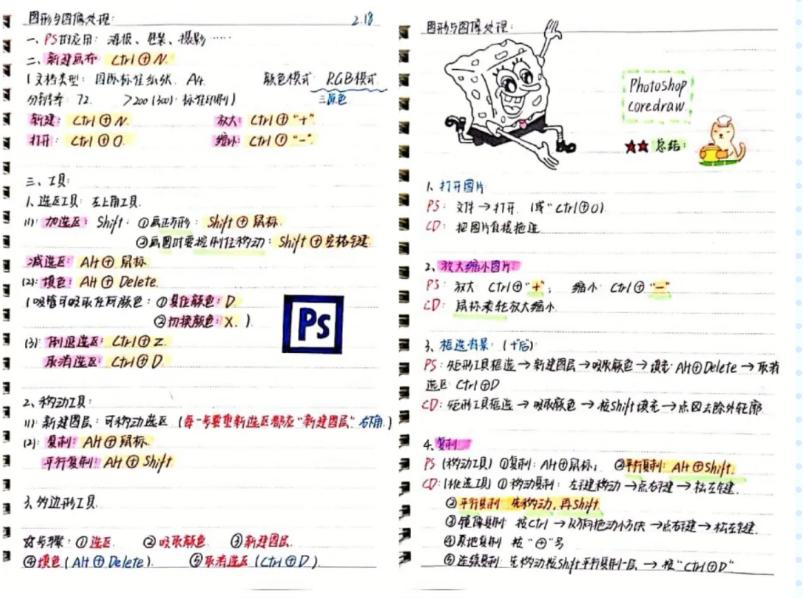 图形与图像处理: 2.18
一、PS的应用: 海报、包装、摄影……
二、新建画布 Ctrl⊕N.
1文档类型: 国际标准纸张. A4. 颜色模式: RGB模式
分辨率: 72. >200 (300): 标准印刷) 三原色
新建: Ctrl⊕N. 放大: Ctrl⊕"+"
打开: Ctrl⊕O. 缩小: Ctrl⊕"-".
三、工具:
1、选区工具: 左上角工具.
(1): 加选区: Shift: ①画正方形: Shift⊕鼠标.
②画圆时要按制住移动: Shift⊕空格键
减选区: Alt⊕鼠标.
(2): 填色: Alt⊕Delete.
(吸管可吸取任何颜色: ①复位颜色: D.
②切换颜色: X. )
(3): 倒退选区: Ctrl⊕Z.
取消选区: Ctrl⊕D.
Ps
2、移动工具:
(1): 新建图层: 可移动选区 (每一步要重新选区都在"新建图层"右角)
(2): 复制: Alt⊕鼠标.
平行复制: Alt⊕Shift
3、多边形工具.
步骤: ①选区. ②吸取颜色 ③新建图层.
④填色(Alt⊕Delete). ⑤取消选区(Ctrl⊕D).
图形与图像处理:
Photoshop
coredraw
★★总结:
1、打开图片
PS: 文件→打开. (或"Ctrl⊕O)
CD: 把图片直接拖进
2、放大缩小图片:
PS: 放大 Ctrl⊕"+"; 缩小 Ctrl⊕"-"
CD: 鼠标来轮放大缩小.
3、框选背景: (十后)
PS: 矩形工具框选→新建图层→吸取颜色→填充 Alt⊕Delete→取消
选区 Ctrl⊕D
CD: 矩形工具框选→吸取颜色→按Shift填充→点图去除外轮廓
4、复制
PS (移动工具) ①复制: Alt⊕鼠标; ②平行复制: Alt⊕Shift.
CD: (挑选工具) ①移动复制: 左键移动→点右键→松左键.
②平行复制 先移动, 再Shift
③镜像复制 按Ctrl→从方向拖动小方块→点右键→松左键.
④原地复制 按"⊕"号
⑤连续复制: 先移动按Shift平行复制一层. →按"Ctrl⊕D"